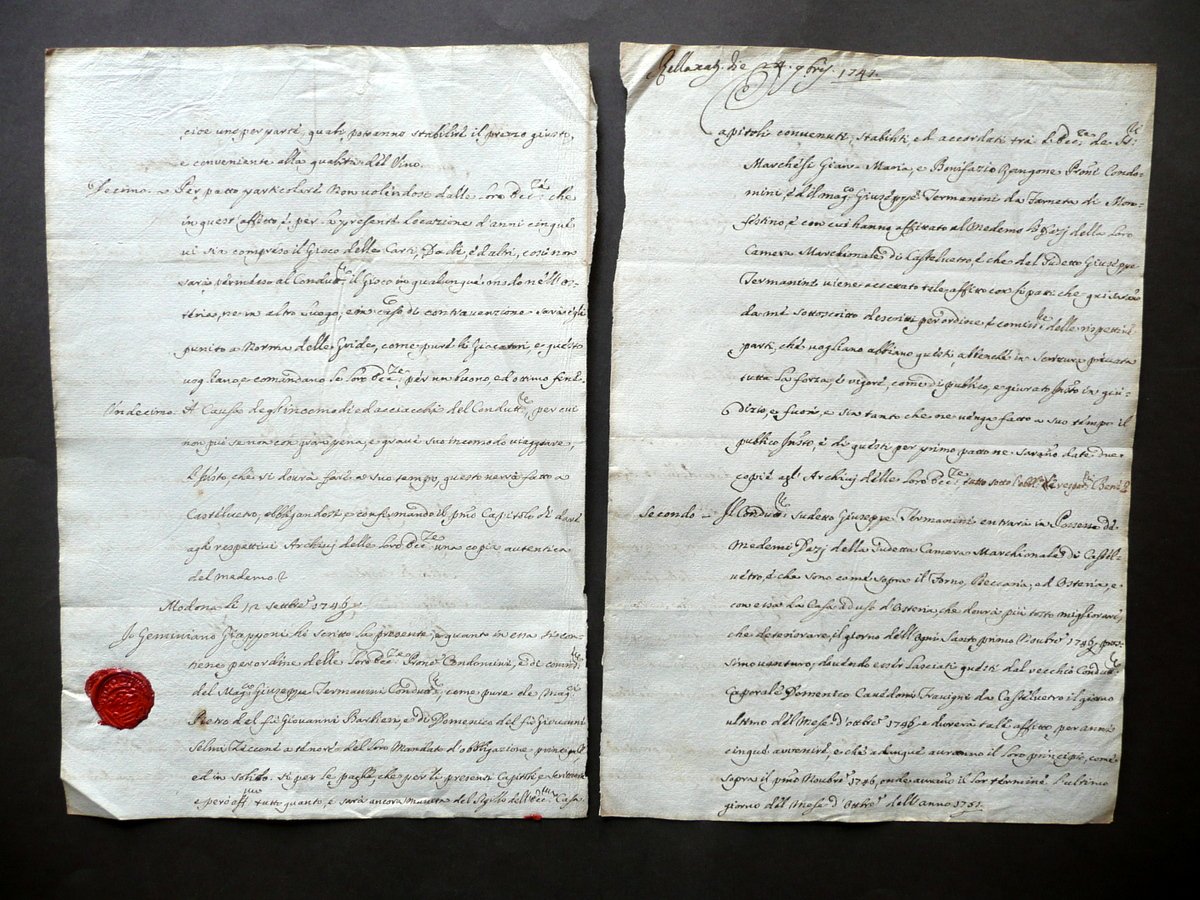 cioè uno per parte, quali potranno stabilire il prezzo giusto,
e conveniente alla qualità del Vino.
Decimo. Per patto particolare non volendosi dalle Loro Ecc.ze che
in quest'affitto, e per la presente Locazione d'anni cinque
vi sia compreso il Gioco delle Carti, Dadi, ed altri, così non
sarà permesso al Condutt.re il Gioco in qualunque modo nell'Os-
teria, ne in altro Luogo, e in caso di contravenzione sarà
punito a Norma delle Gride, come pure li Giocatori, e questo
vogliano e comandano le Loro Ecc.ze per un buono, ed ottimo fine.
Undecimo. A Causa degl'incomodi ed acciacchi del Condutt.re per cui
non può se non con gran pena, e grave suo incomodo viaggiare,
l'Insto che si dovrà fare a suo tempo, questo verrà fatto a
Castelvetro, obbligandosi e confirmando il pmo Capitolo di dare
agli respettivi Archivj delle Loro Ecc.ze una copia autentica
del medemo.
Modona li 12 Settbre 1746
Io Geminiano hò scritto la presente, e quanto in essa si con-
tiene per ordine delle Loro Ecc.ze Prone Condomini, e di comiss.ne
del Mag.co Giuseppe Termanini Condutt.re come pure de Mag.ci
Pietro del fù Giovanni e di Domenico del fù Giovanni
a tenore del Loro Mandato d'obbligazione principale
ed in solido sì per le paghe, che per li presenti Capitoli, e Scrittura
e però tutto quanto, e sarà ancora munita del Sigillo dell' Ecc.ma Casa.
die 24 9bris 1747.
Capitoli convenuti, stabiliti, ed accordati trà le Ecc.ze de SS.ri
Marchese Gian Maria, e Bonifazio Rangone Proni Condo-
mini, e del mag.co Giuseppe Termanini da Farneta di Mon-
festino, e con cui hanno affittato al Medemo li Dazj della Loro
Camera Marchionale di Castelvetro, e che del sudetto Giuseppe
Termanini viene accettato tale affitto con li patti che qui saranno
da me sottoscritto descritti per ordine e comiss.ne delle rispettive
parti, chè vogliano abbiano questi, abbenche in Scrittura privata
tutta la forza, e vigore, come di publico, e giurato Insto in giu-
dizio, e fuori, e sin tanto che ne venga fatto a suo tempo il
publico Insto, e di questi per primo patto ne saranno date due
copie agl'Archivj delle Loro Ecc.ze tutto sotto l'obblig.
Secondo - Il Condutt.re sudetto Giuseppe Termanini entrarà in Possesso de
Medemi Dazj della sudetta Camera Marchionale di Castel-
vetro, e che sono come sopra il Forno, Beccaria, ed Osteria, e
con essa la Casa ad uso d'Osteria, che dovrà più tosto migliorare,
che deteriorare, il giorno dell'Ogni Santo primo Novbre 1746 pros-
simo venturo, dovendo esser lasciati questi dal vecchio Condutt.re
Caporale Domenico Cavedoni da Castelvetro il giorno
ultimo del Mese d'ottbre 1746 e durerà tale affitto, per anni
cinque avvenire, e chè adunque avranno il Loro principio, come
sopra il pmo Novbre 1746, onde avranno il Lor termine l'ultimo
giorno del Mese d'Ottbre dell'anno 1751.